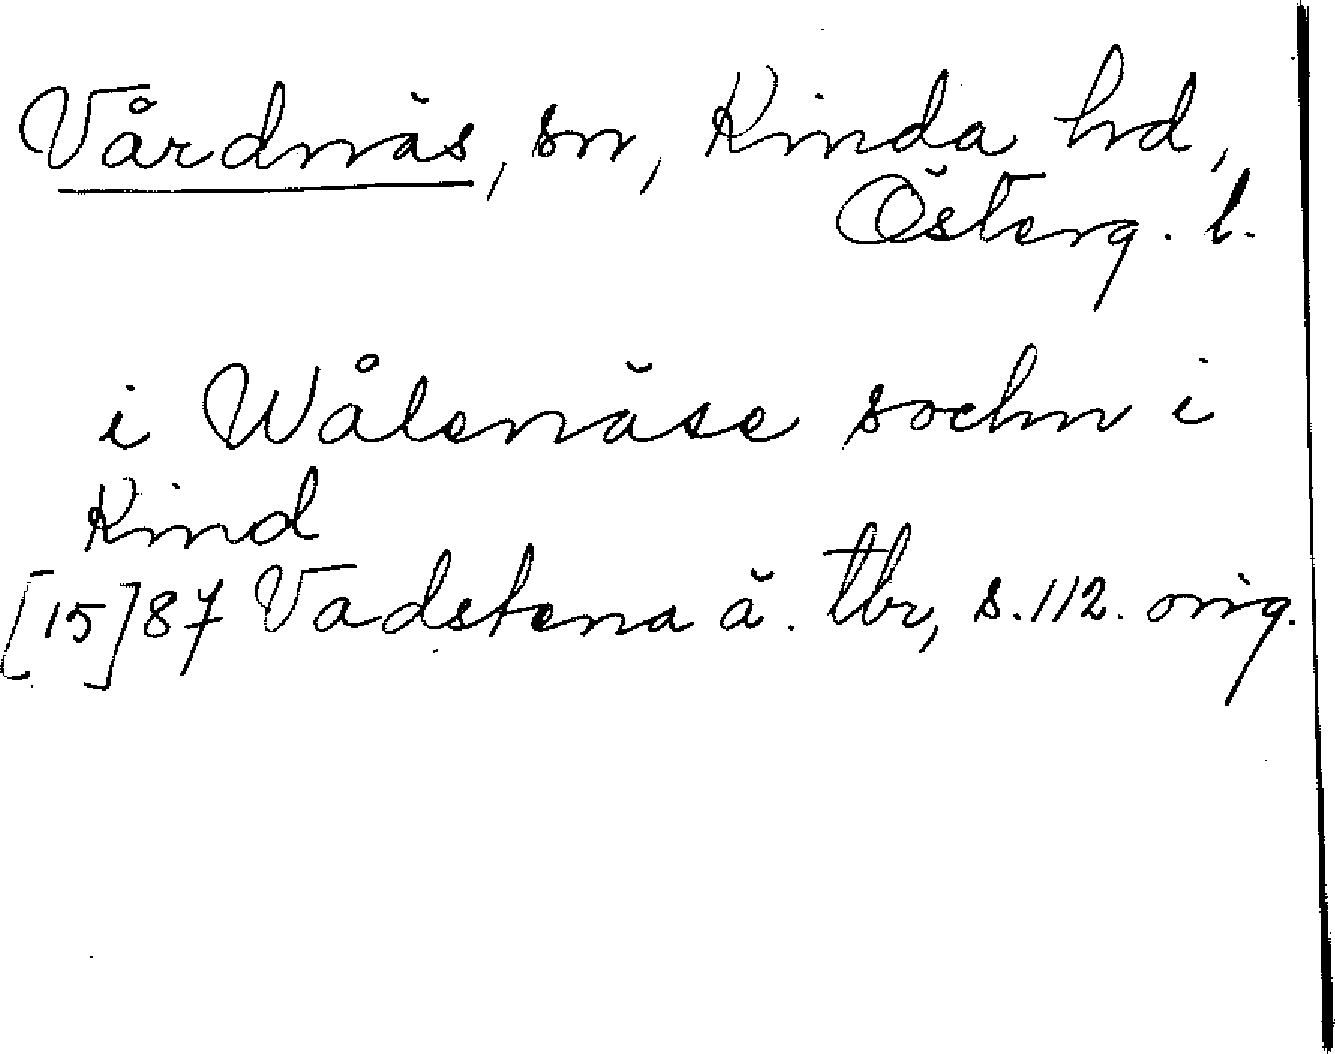 Vårdnäs, sn, Kinda hd,
Österg. l.
i Wålenäse sochn i
Kind
[15]87 Vadstena ä. tbr, s. 112. orig.